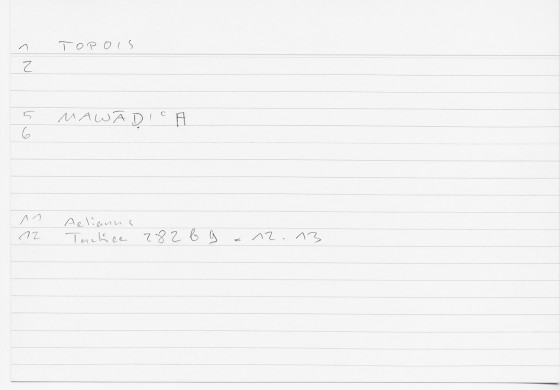 1 TOPOIS
2
5 MAWĀḌIʿA
6
11 Aelianus
12 Tactica 282 b 9 - 12.13